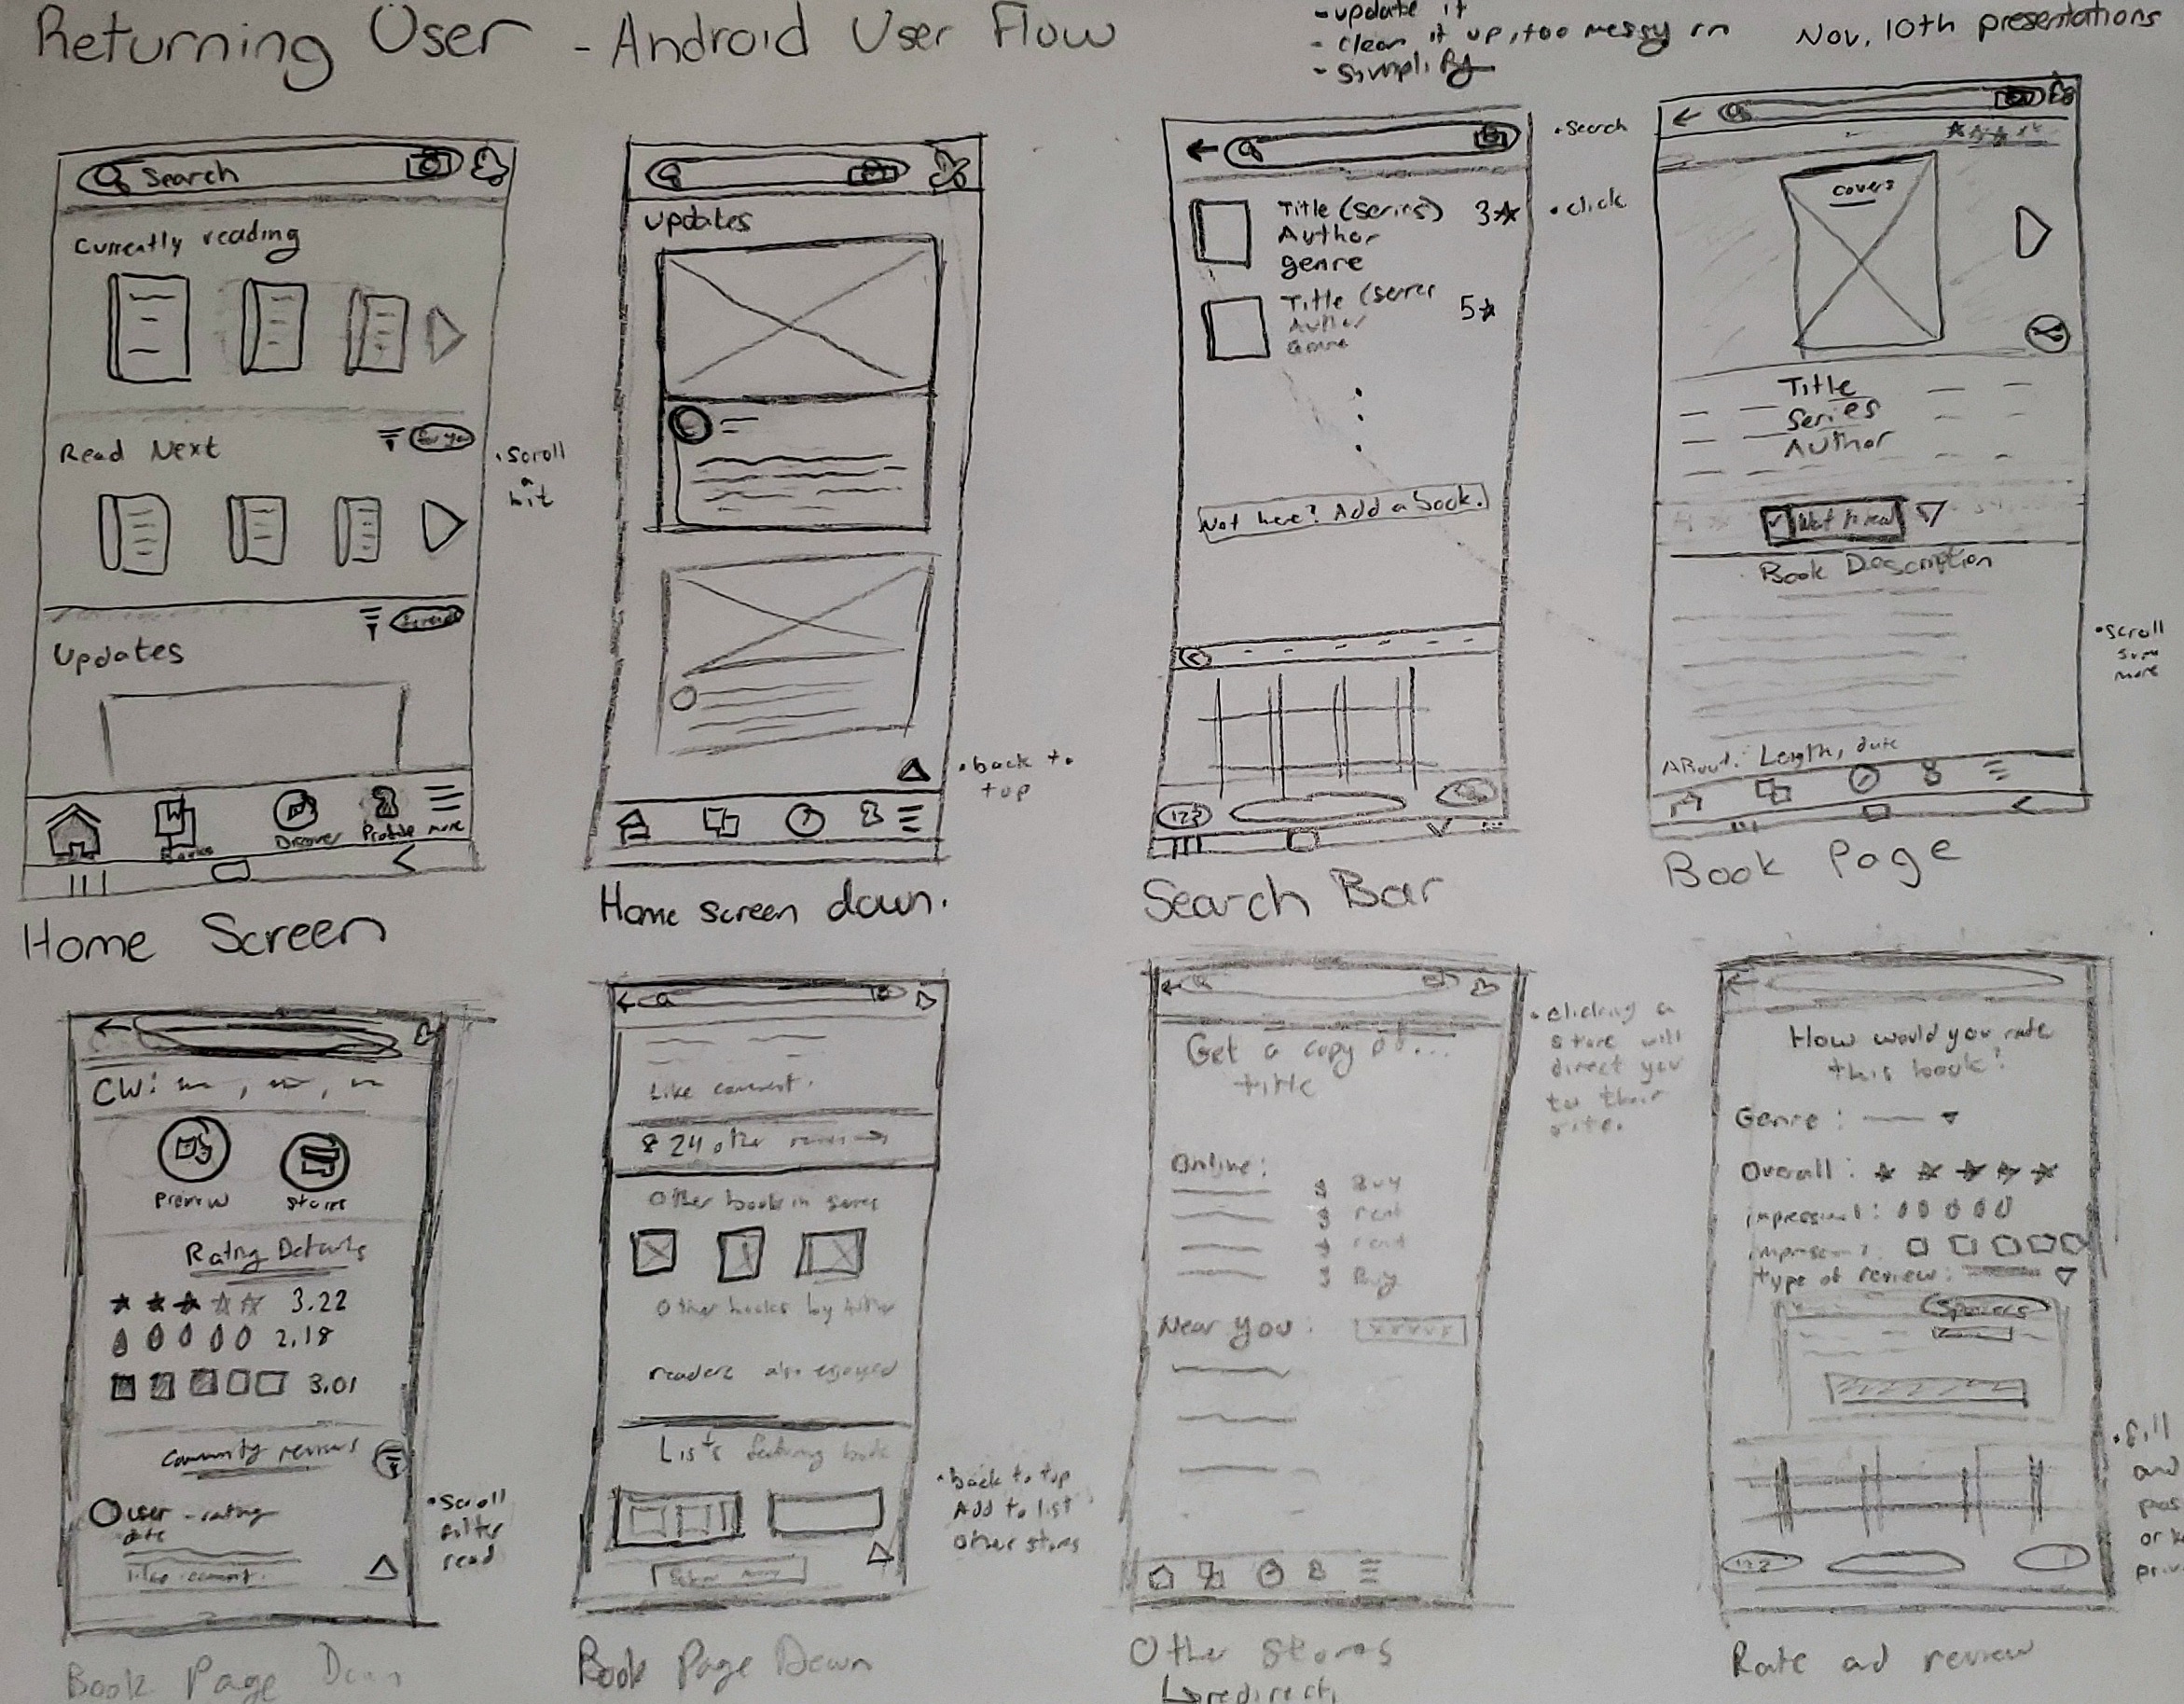 Returning User - Android User Flow
- update it
- clean it up, too messy rn
- simplify
Nov. 10th presentations
Search
Currently reading
Read Next
for you
Updates
Books
Discover
Profile
more
• Scroll
a
bit
Home Screen
Updates
• back to
top
Home screen down.
Title (series) 3★
Author
genre
Title (series 5★
Author
Genre
Not here? Add a book.
123
• Search
• click
Search Bar
covers
Title
Series
Author
Want to read
Book Description
About: Length, date
• scroll
some
more
Book Page
CW:
Preview
Stores
Rating Details
3.22
2.18
3.01
Community reviews
user - rating
date
Like comment.
• Scroll
filter
read
Book Page Down
Like comment.
824 other reviews →
Other book in series
Other books by author
readers also enjoyed
Lists featuring book
• back to top
Add to list
other stores
Book Page Down
Get a copy of...
title
Online:
$ Buy
$ rent
$ rent
$ Buy
Near you: xxxxx
• clicking a
store will
direct you
to their
site.
Other Stores
↳ redirect
How would you rate
this book?
Genre:
Overall: ★ ★ ★ ★ ★
impression 1:
impression 2:
type of review:
Spoilers
123
• fill
and
pos
or k
priv
Rate ad review